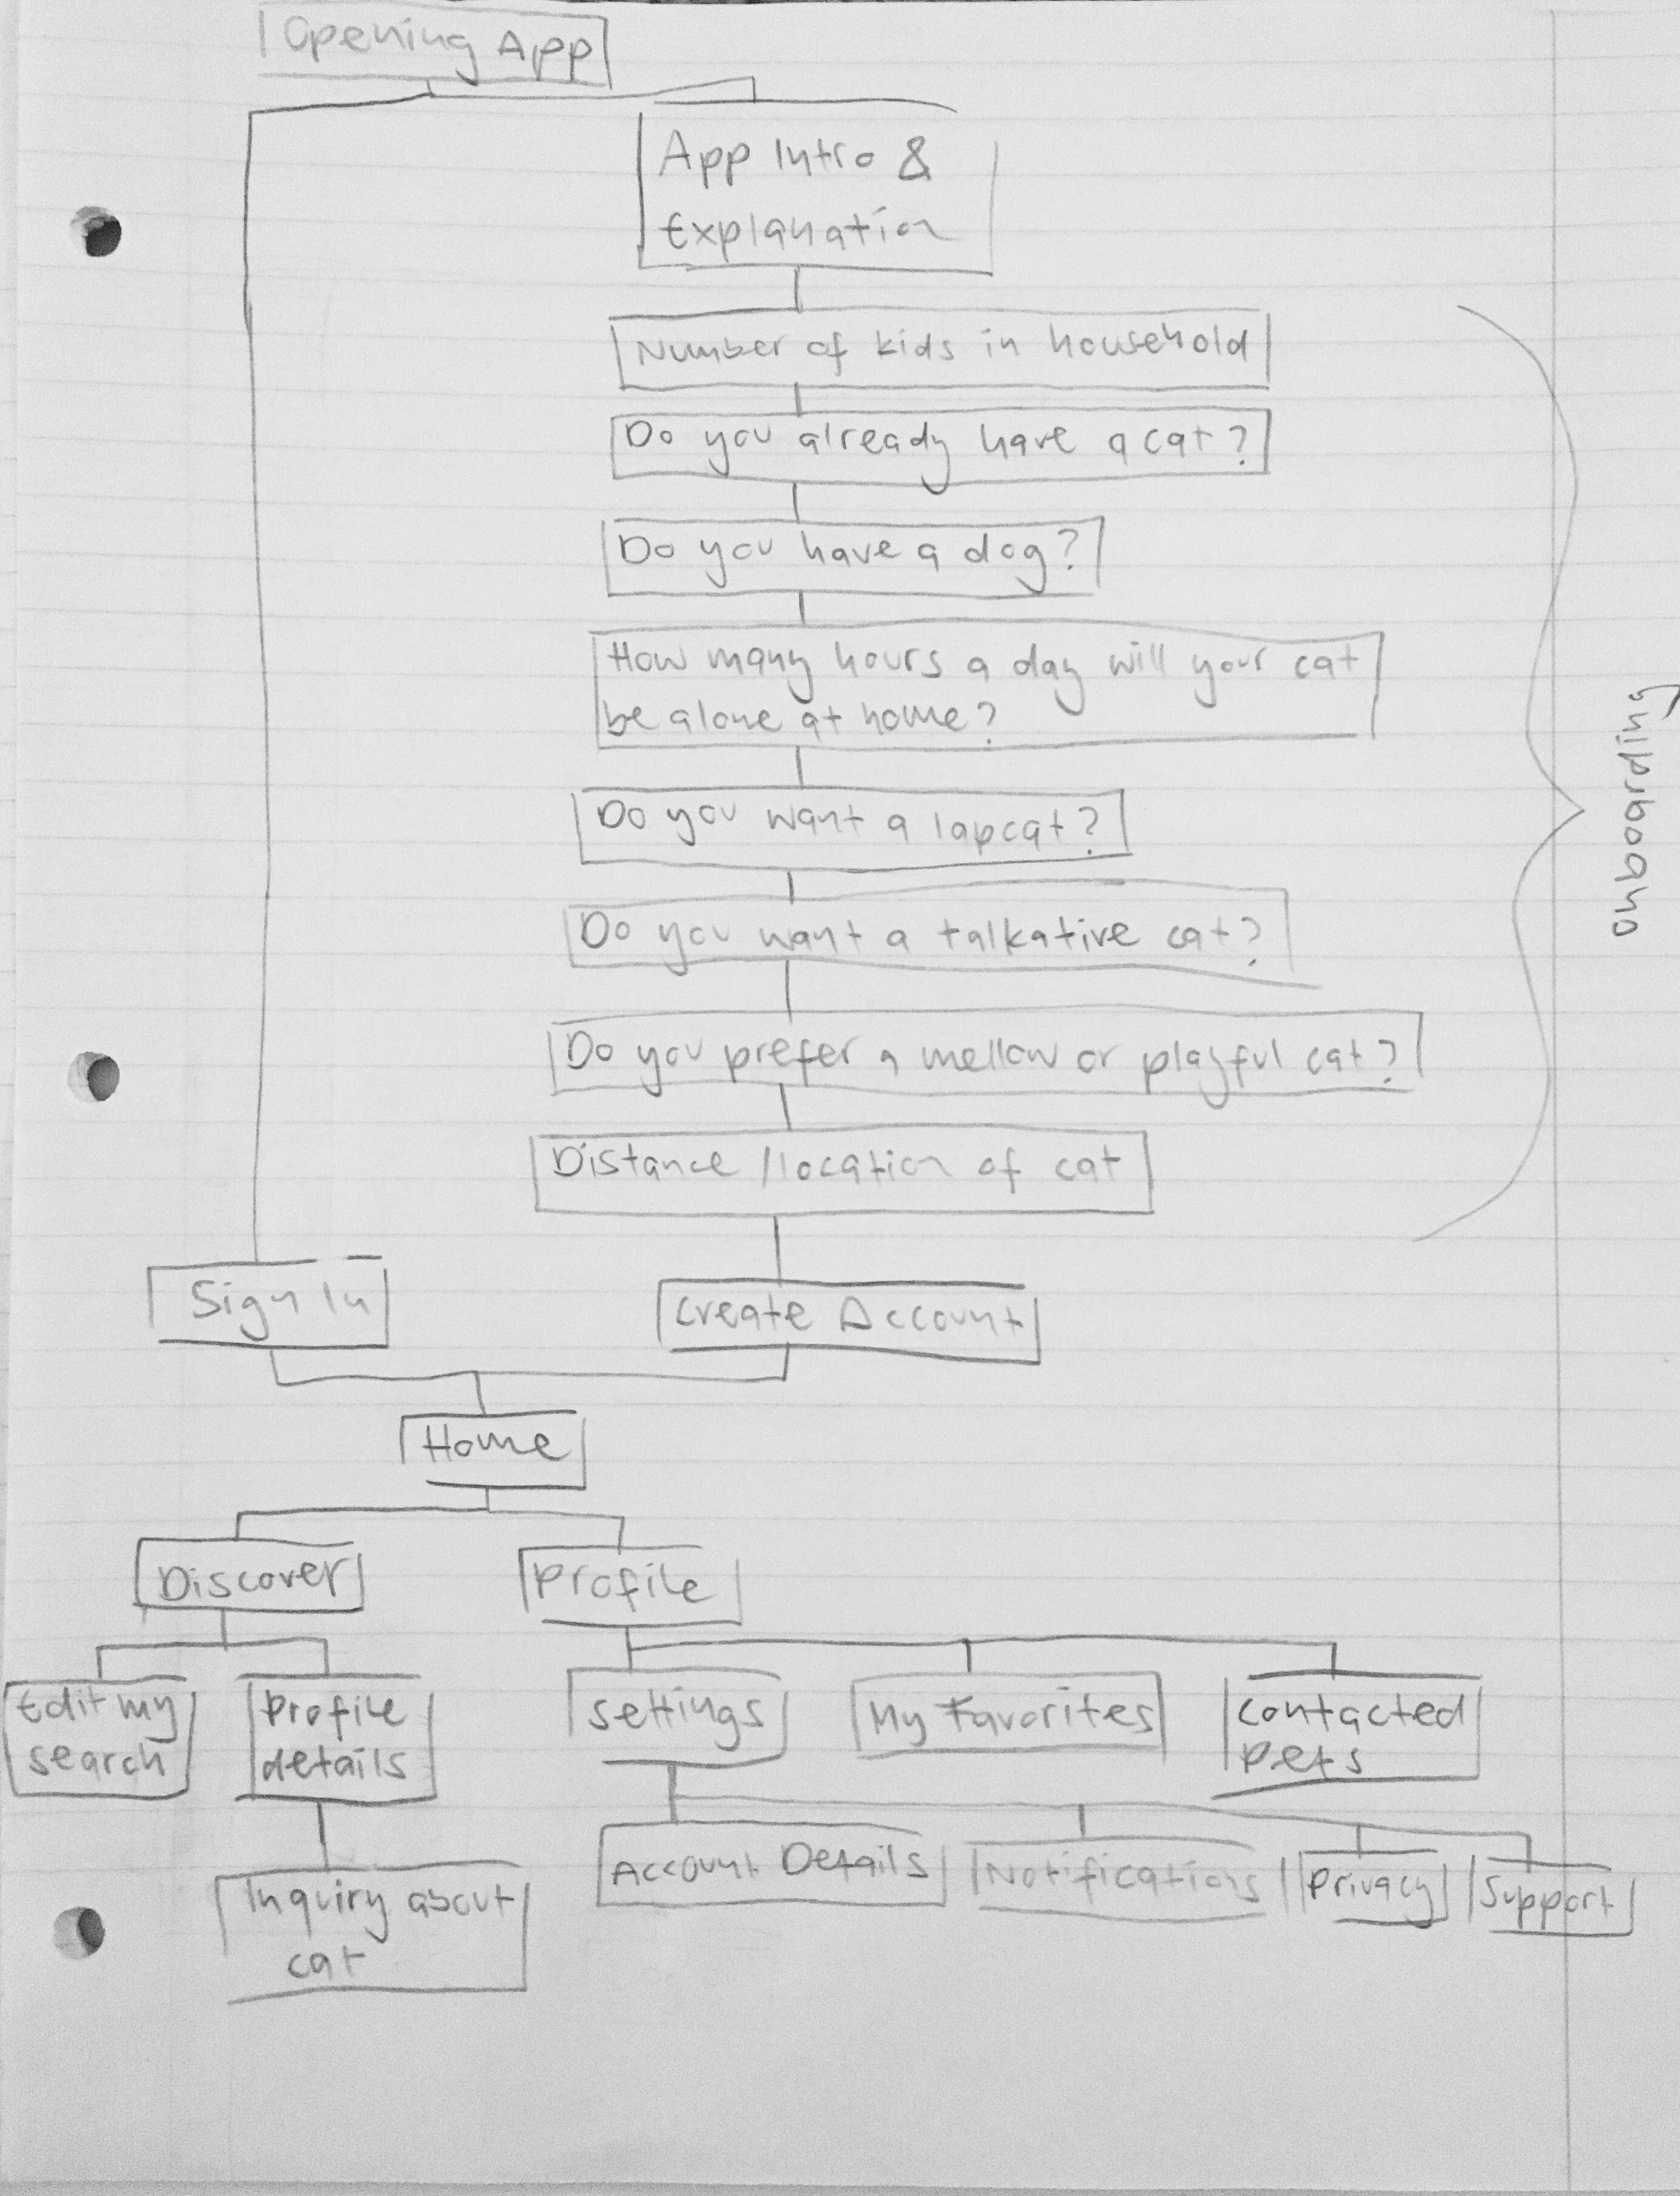 Opening App
App Intro &
Explanation
Number of kids in household
Do you already have a cat?
Do you have a dog?
How many hours a day will your cat
be alone at home?
Do you want a lapcat?
Do you want a talkative cat?
Do you prefer a mellow or playful cat?
Distance / location of cat
onboarding
Sign In
Create Account
Home
Discover
Profile
Edit my
search
Profile
details
Settings
My Favorites
Contacted
Pets
Account Details
Notifications
Privacy
Support
Inquiry about
cat